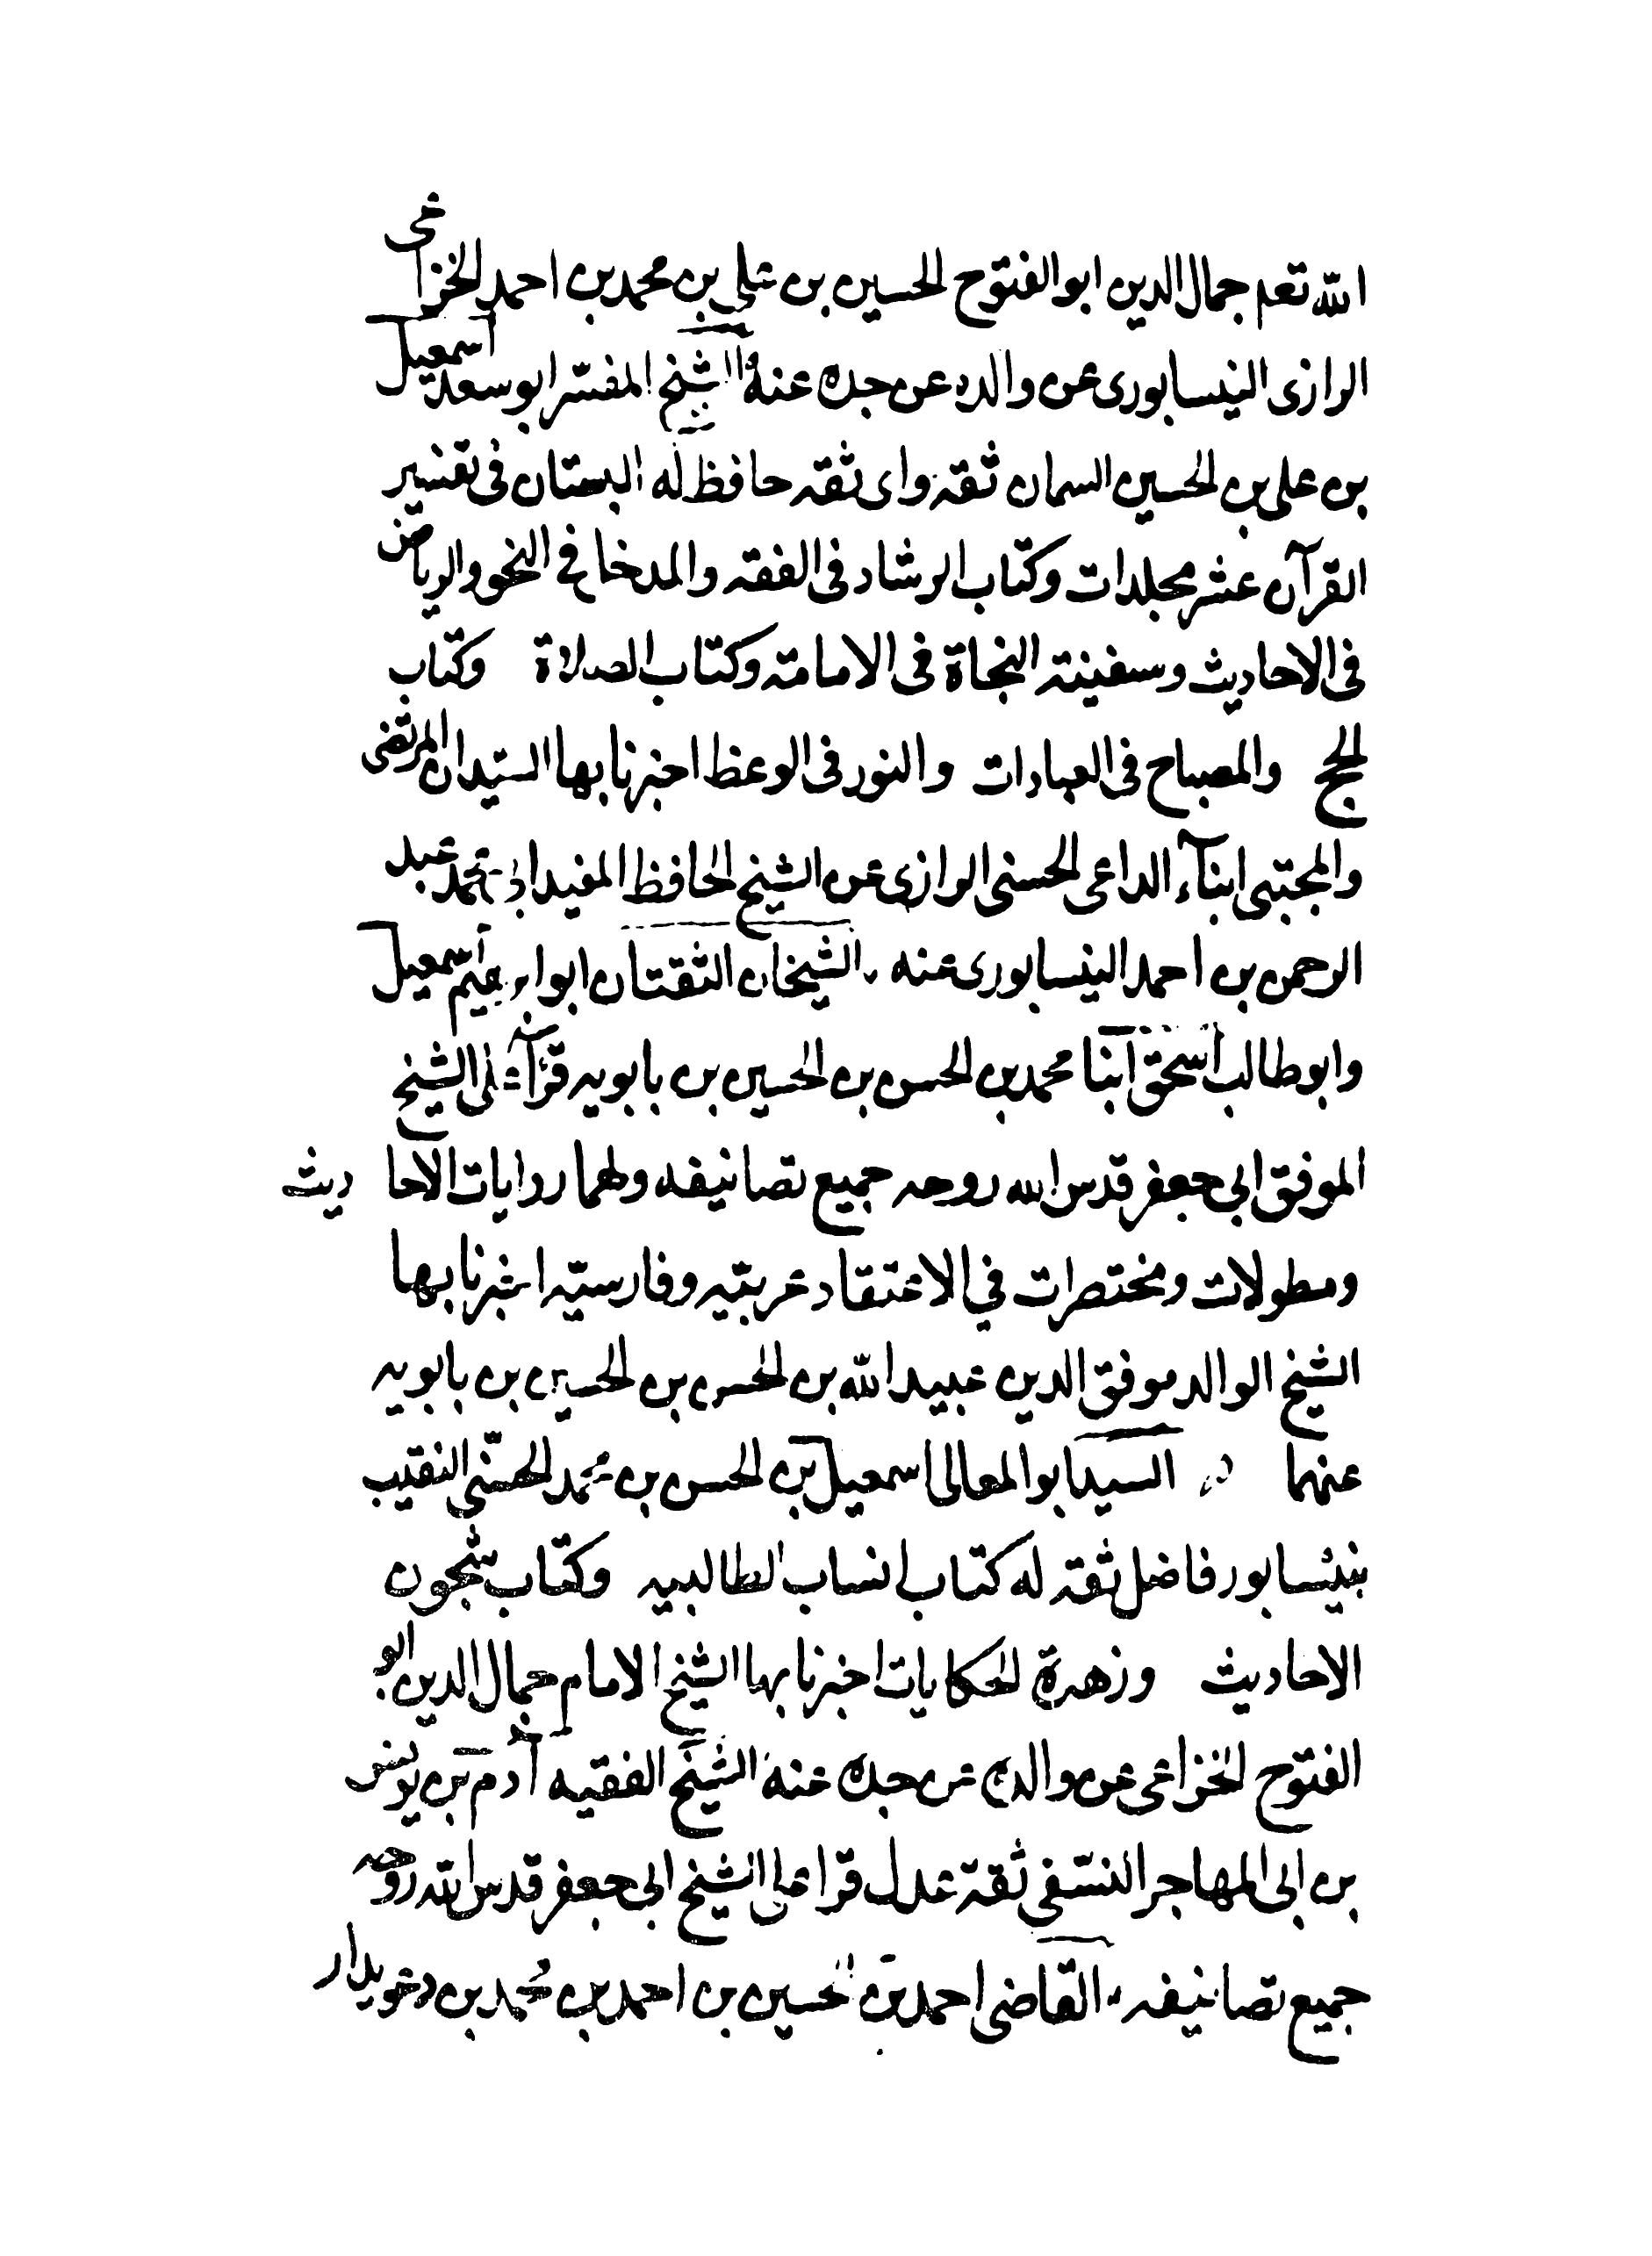 الله تعم جمال الدين ابو الفتوح الحسين بن على بن محمد بن احمد الخزاعى
الرازى النيسابورى عن والده عن جده عنه الشيخ المفسر ابو سعد اسمعيل
بن على بن الحسين السمان ثقة واى ثقه حافظ له البستان فى تفسير
القرآن عشر مجلدات وكتاب الرشاد فى الفقه والمدخل في النحو والرياض
فى الاحاديث وسفينة النجاة فى الامامة وكتاب الصلاة وكتاب
الحج والمصباح فى العبادات والنور فى الوعظ اخبرنا بها السيدان المرتضى
والمجتبى ابنآء الداعى الحسنى الرازى عن الشيخ الحافظ المفيد ابى محمد عبد
الرحمن بن احمد النيسابورى عنه الشيخان الثقتان ابو ابرهيم اسمعيل
وابو طالب اسحق ابنا محمد بن الحسن بن الحسين بن بابويه قرآ على الشيخ
الموفق ابى جعفر قدس الله روحه جميع تصانيفه ولهما روايات الاحاديث
ومطولات ومختصرات في الاعتقاد عربيّه وفارسيّه اخبرنا بها
الشيخ الوالد موفق الدين عبيد الله بن الحسن بن الحسين بن بابويه
عنهما السيد ابو المعالى اسمعيل بن الحسن بن محمد الحسنى النقيب
بنيسابور فاضل ثقه له كتاب انساب الطالبيه وكتاب شجون
الاحاديث وزهرة الحكايات اخبرنا بها الشيخ الامام جمال الدين ابو
الفتوح الخزاعى عن والده عن جده عنه الشيخ الفقيه آدم بن يونس
بن ابى المهاجر النسفى ثقة عدل قرا على الشيخ ابى جعفر قدس الله روحه
جميع تصانيفه القاضى احمد بن الحسين بن احمد بن محمد بن دعويدار